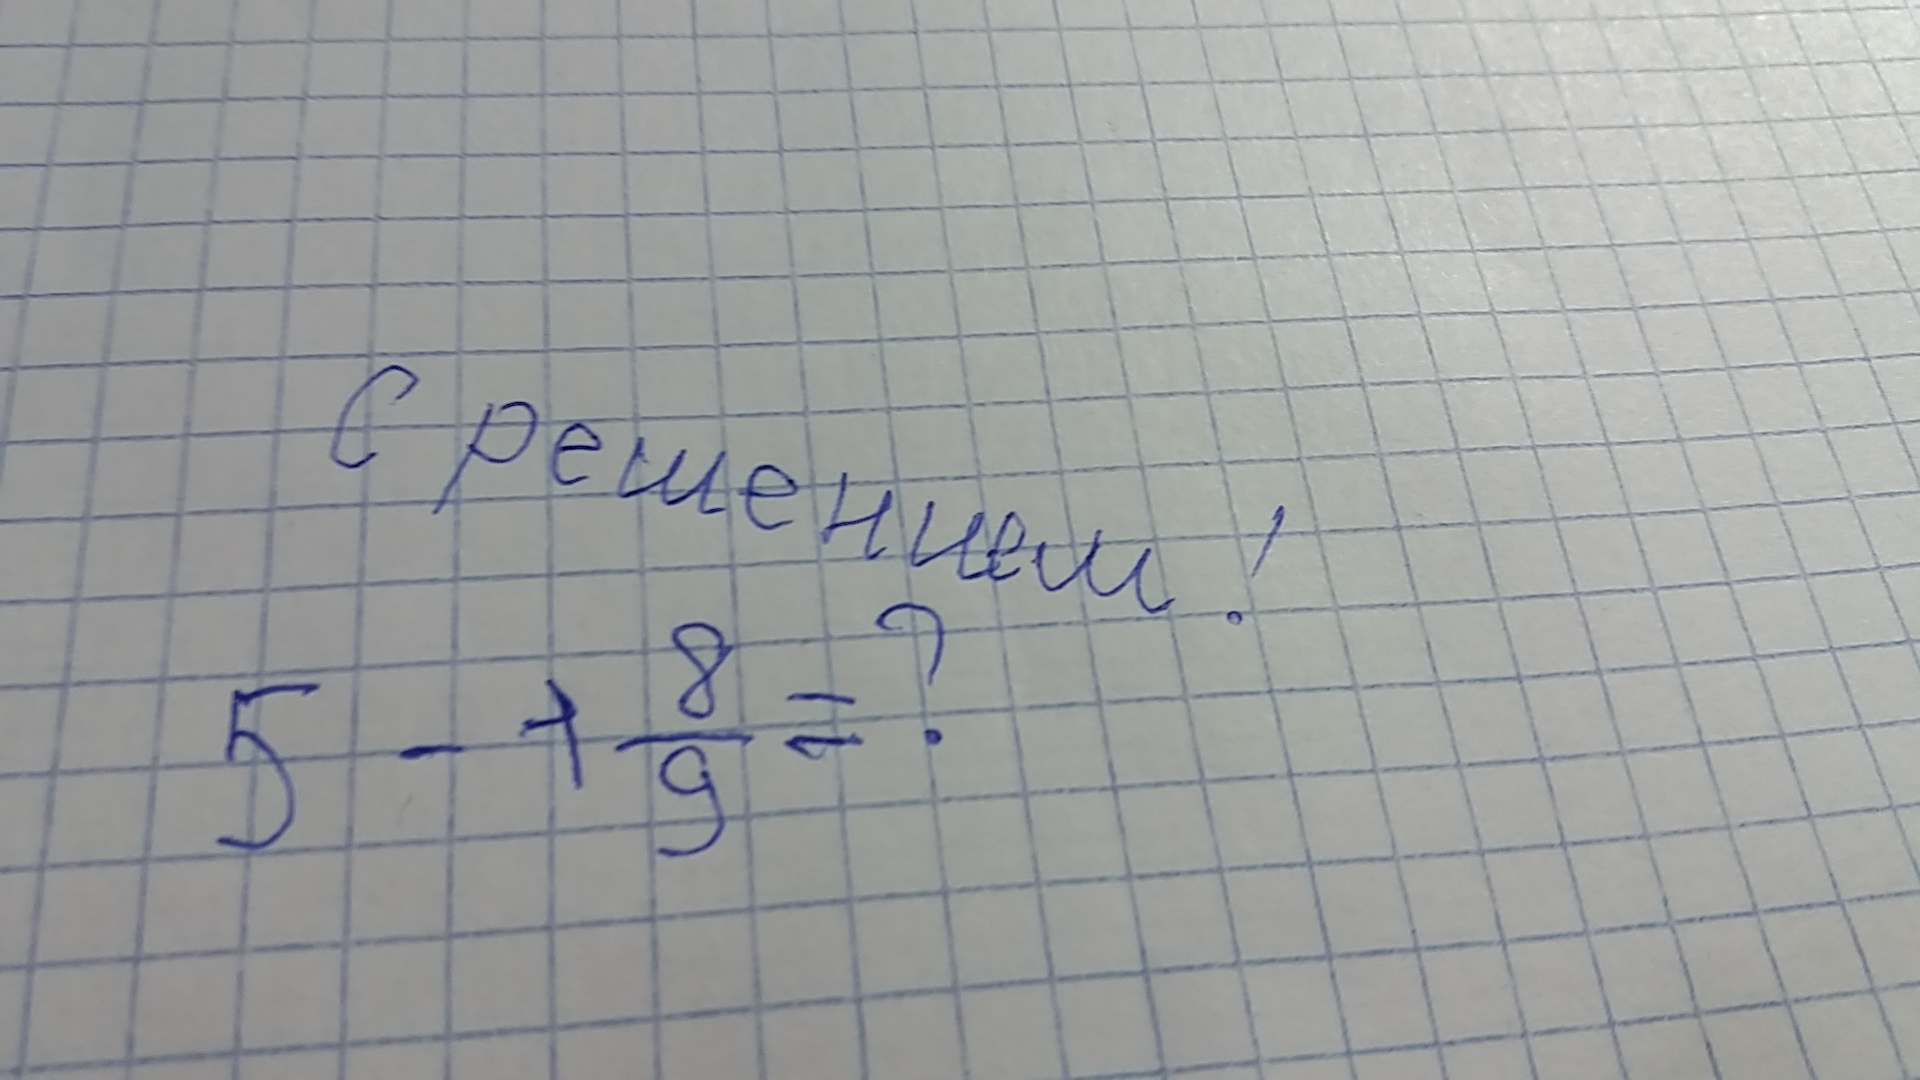 С решением!
5 - 1 8/9 = ?